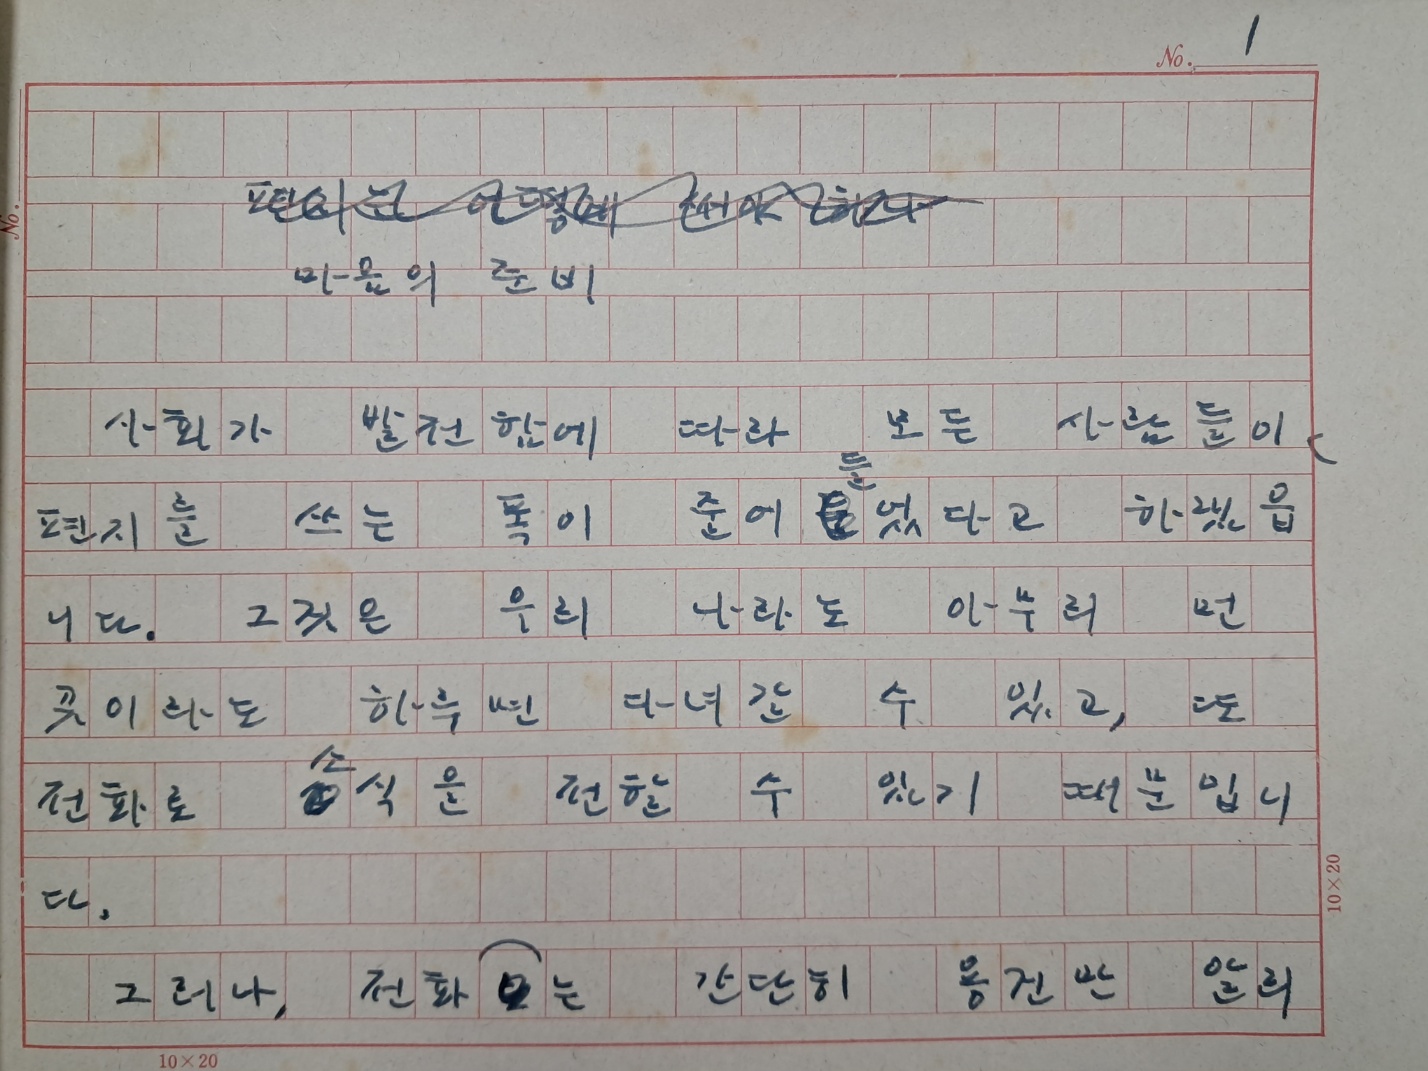 No. 1
편지는 어떻게 써야 하나
마음의 준비
사회가 발전함에 따라 모든 사람들이
편지를 쓰는 폭이 줄어들었다고 하겠읍
니다. 그것은 우리 나라도 아무리 먼
곳이라도 하루면 다녀갈 수 있고, 또
전화로 소식을 전할 수 있기 때문입니
다.
그러나, 전화는 간단히 용건만 알리
10×20
10×20
No.